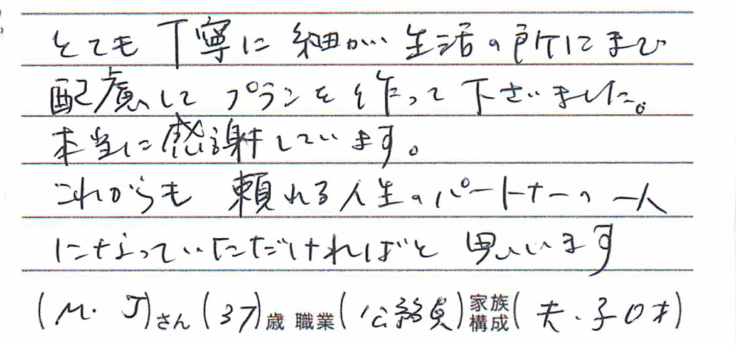 とても丁寧に細かい生活の所にまで
配慮してプランを作って下さいました。
本当に感謝しています。
これからも 頼れる人生のパートナーの一人
になっていただければと 思います
(M. J)さん(37)歳 職業(公務員)家族構成(夫・子0才)